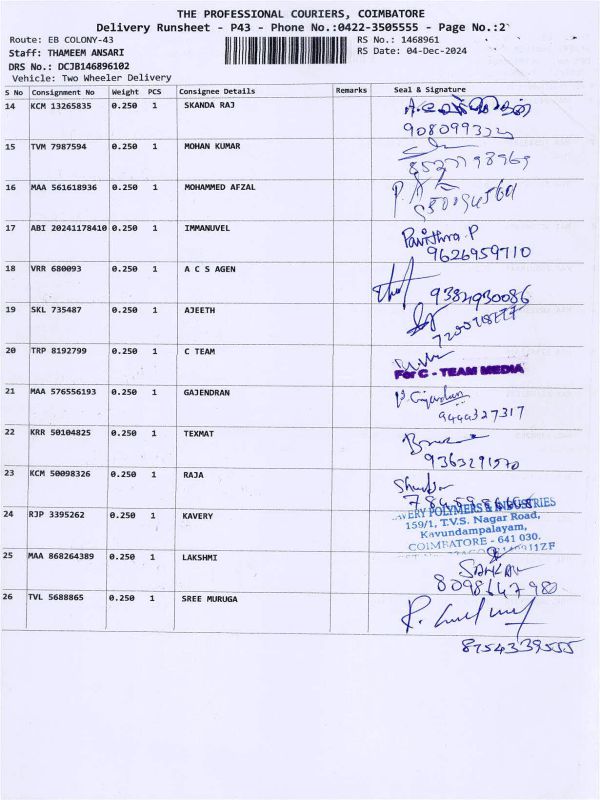 THE PROFESSIONAL COURIERS, COIMBATORE
Delivery Runsheet - P43 - Phone No.:0422-3505555 - Page No.:2
Route: EB COLONY-43 RS No.: 1468961
Staff: THAMEEM ANSARI RS Date: 04-Dec-2024
DRS No.: DCJB146896102
Vehicle: Two Wheeler Delivery
S No Consignment No Weight PCS Consignee Details Remarks Seal & Signature
14 KCM 13265835 0.250 1 SKANDA RAJ
15 TVM 7987594 0.250 1 MOHAN KUMAR
16 MAA 561618936 0.250 1 MOHAMMED AFZAL
17 ABI 20241178410 0.250 1 IMMANUVEL Pavithra P
9626959710
18 VRR 680093 0.250 1 A C S AGEN
9384930086
19 SKL 735487 0.250 1 AJEETH
20 TRP 8192799 0.250 1 C TEAM
For C - TEAM MEDIA
21 MAA 576556193 0.250 1 GAJENDRAN
9444327317
22 KRR 50104825 0.250 1 TEXMAT
9363291570
23 KCM 50098326 0.250 1 RAJA
24 RJP 3395262 0.250 1 KAVERY POLYMERS & INDUSTRIES
159/1, T.V.S. Nagar Road,
Kavundampalayam,
COIMBATORE - 641 030.
25 MAA 868264389 0.250 1 LAKSHMI
8098647980
26 TVL 5688865 0.250 1 SREE MURUGA
8754339555